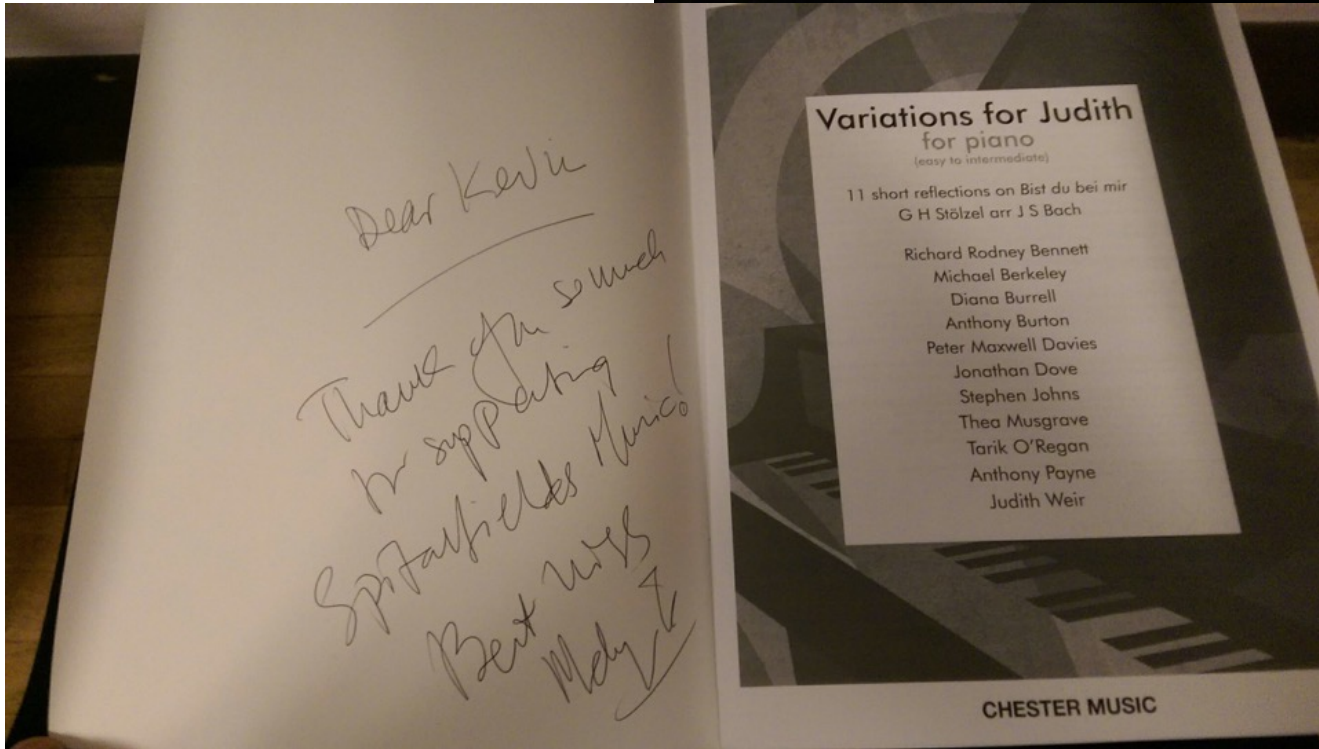 Dear Kevin
Thank you so much
for supporting
Spitalfields Music!
Best wishes
Variations for Judith
for piano
(easy to intermediate)
11 short reflections on Bist du bei mir
G H Stölzel arr J S Bach
Richard Rodney Bennett
Michael Berkeley
Diana Burrell
Anthony Burton
Peter Maxwell Davies
Jonathan Dove
Stephen Johns
Thea Musgrave
Tarik O'Regan
Anthony Payne
Judith Weir
CHESTER MUSIC